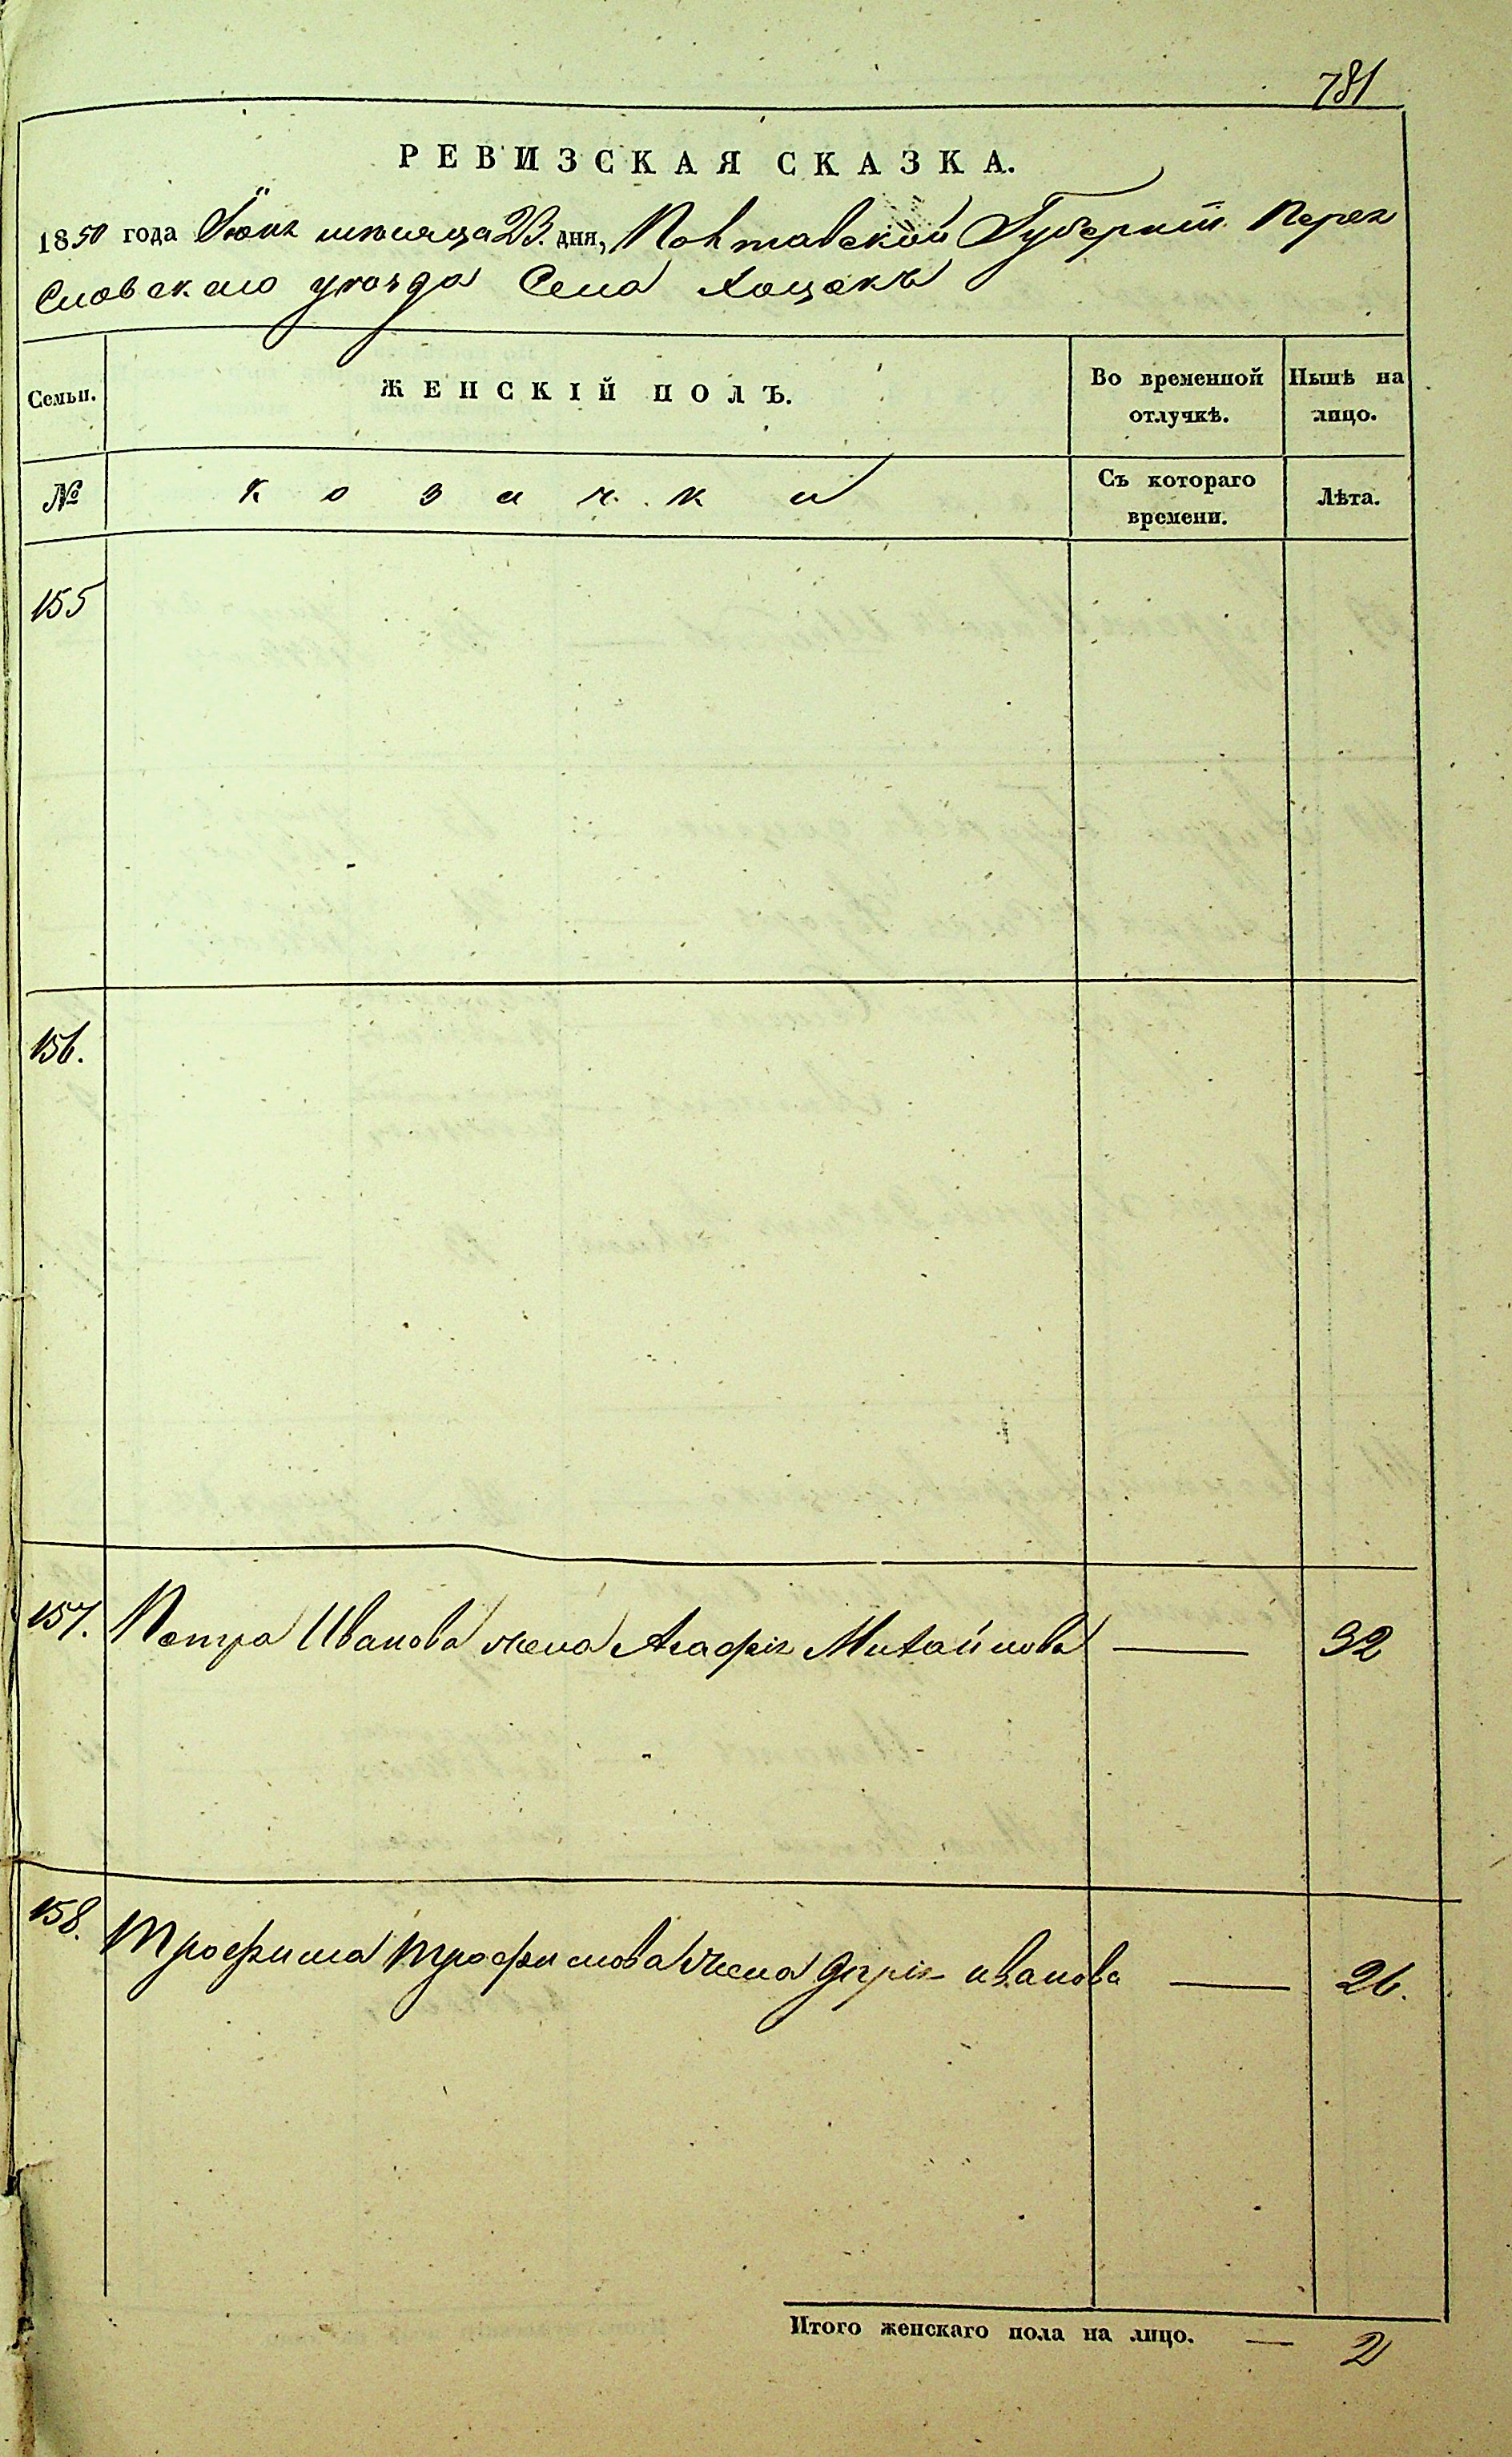 781
РЕВИЗСКАЯ СКАЗКА.
1850 года Іюня мѣсяца 23. дня, Полтавской Губерніи Перея
славскаго уѣзда Села Хоцекъ
Семьи.
ЖЕНСКІЙ ПОЛЪ.
Во временной отлучкѣ.
Нынѣ на лицо.
№
козачки
Съ котораго времени.
Лѣта.
155
156.
157. Петра Иванова жена Агафія Михайлова — 32
158. Трофима Трофимова жена Дарія иванова — 26.
Итого женскаго пола на лицо. — 2